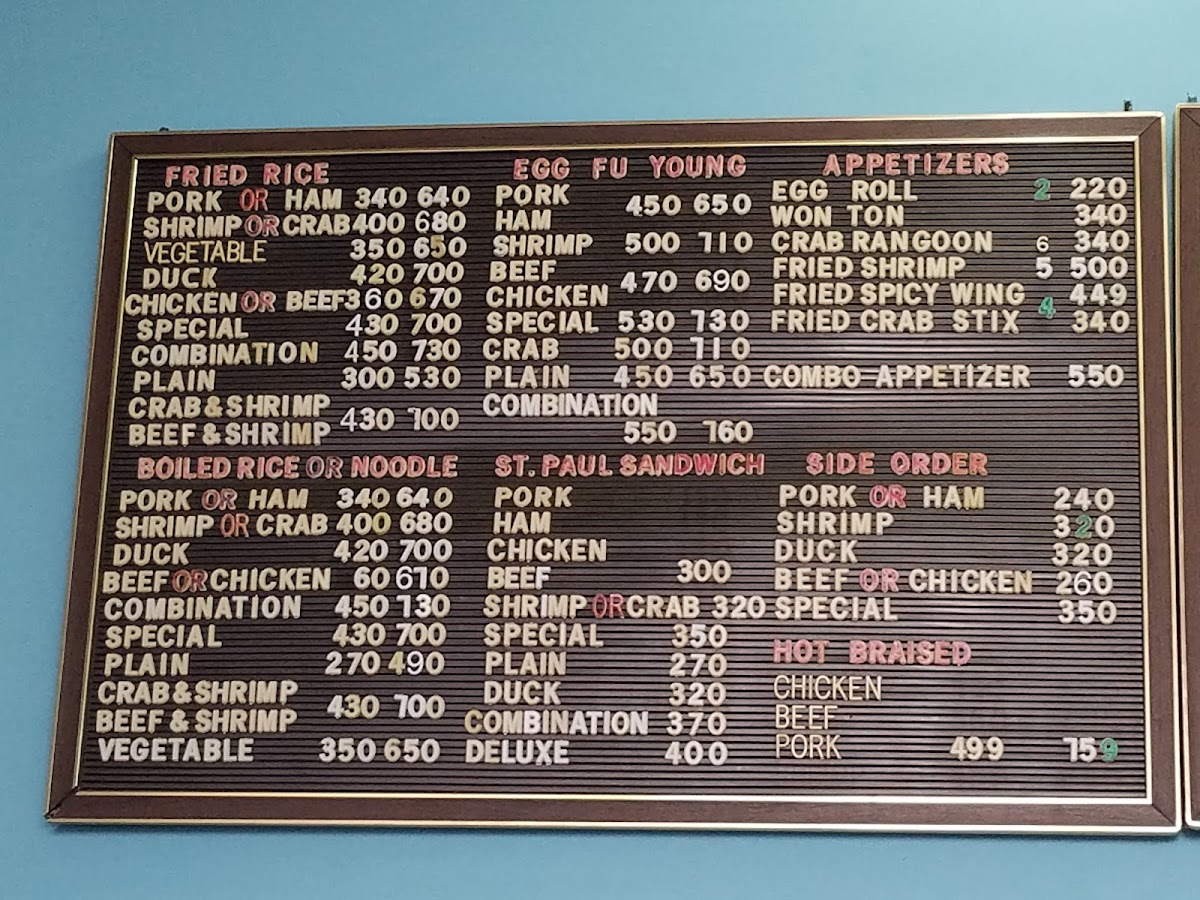 FRIED RICE
PORK OR HAM 340 640
SHRIMP OR CRAB 400 680
VEGETABLE 350 650
DUCK 420 700
CHICKEN OR BEEF 360 670
SPECIAL 430 700
COMBINATION 450 730
PLAIN 300 530
CRAB & SHRIMP
430 700
BEEF & SHRIMP
BOILED RICE OR NOODLE
PORK OR HAM 340 640
SHRIMP OR CRAB 400 680
DUCK 420 700
BEEF OR CHICKEN 60 670
COMBINATION 450 730
SPECIAL 430 700
PLAIN 270 490
CRAB & SHRIMP
430 700
BEEF & SHRIMP
VEGETABLE 350 650
EGG FU YOUNG
PORK
450 650
HAM
SHRIMP 500 710
BEEF
470 690
CHICKEN
SPECIAL 530 730
CRAB 500 710
PLAIN 450 650
COMBINATION
550 760
ST. PAUL SANDWICH
PORK
HAM
CHICKEN
BEEF 300
SHRIMP OR CRAB 320
SPECIAL 350
PLAIN 270
DUCK 320
COMBINATION 370
DELUXE 400
APPETIZERS
EGG ROLL 2 220
WON TON 340
CRAB RANGOON 6 340
FRIED SHRIMP 5 500
FRIED SPICY WING 449
4
FRIED CRAB STIX 340
COMBO APPETIZER 550
SIDE ORDER
PORK OR HAM 240
SHRIMP 320
DUCK 320
BEEF OR CHICKEN 260
SPECIAL 350
HOT BRAISED
CHICKEN
BEEF
PORK 499 759